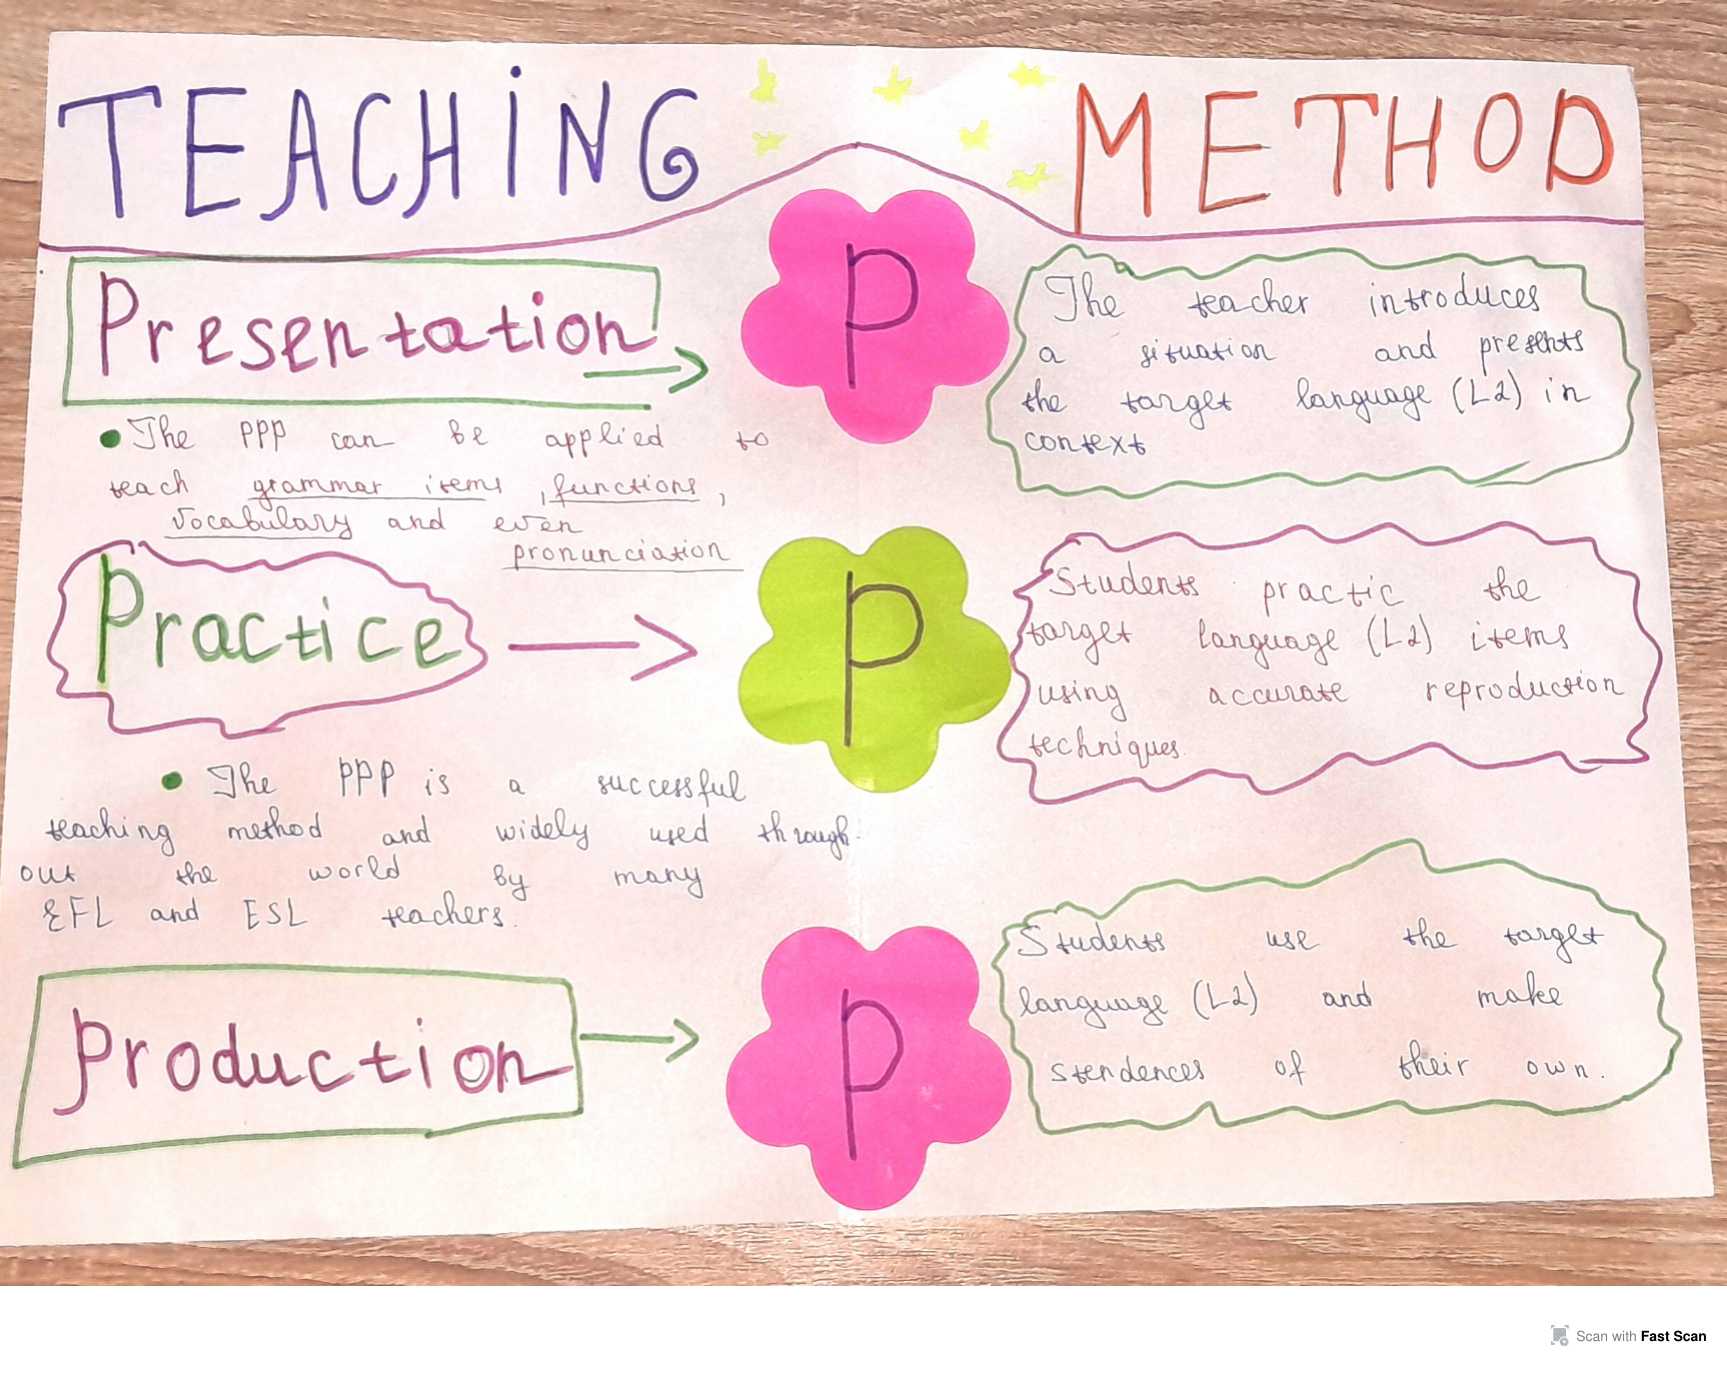 TEACHING METHOD
Presentation
P
The teacher introduces
a situation and presents
the target language (L2) in
context
The PPP can be applied to
teach grammar items, functions,
vocabulary and even
pronunciation
Practice
P
Students practic the
target language (L2) items
using accurate reproduction
techniques.
The PPP is a successful
teaching method and widely used through-
out the world by many
EFL and ESL teachers.
Production
P
Students use the target
language (L2) and make
stendences of their own.
Scan with Fast Scan